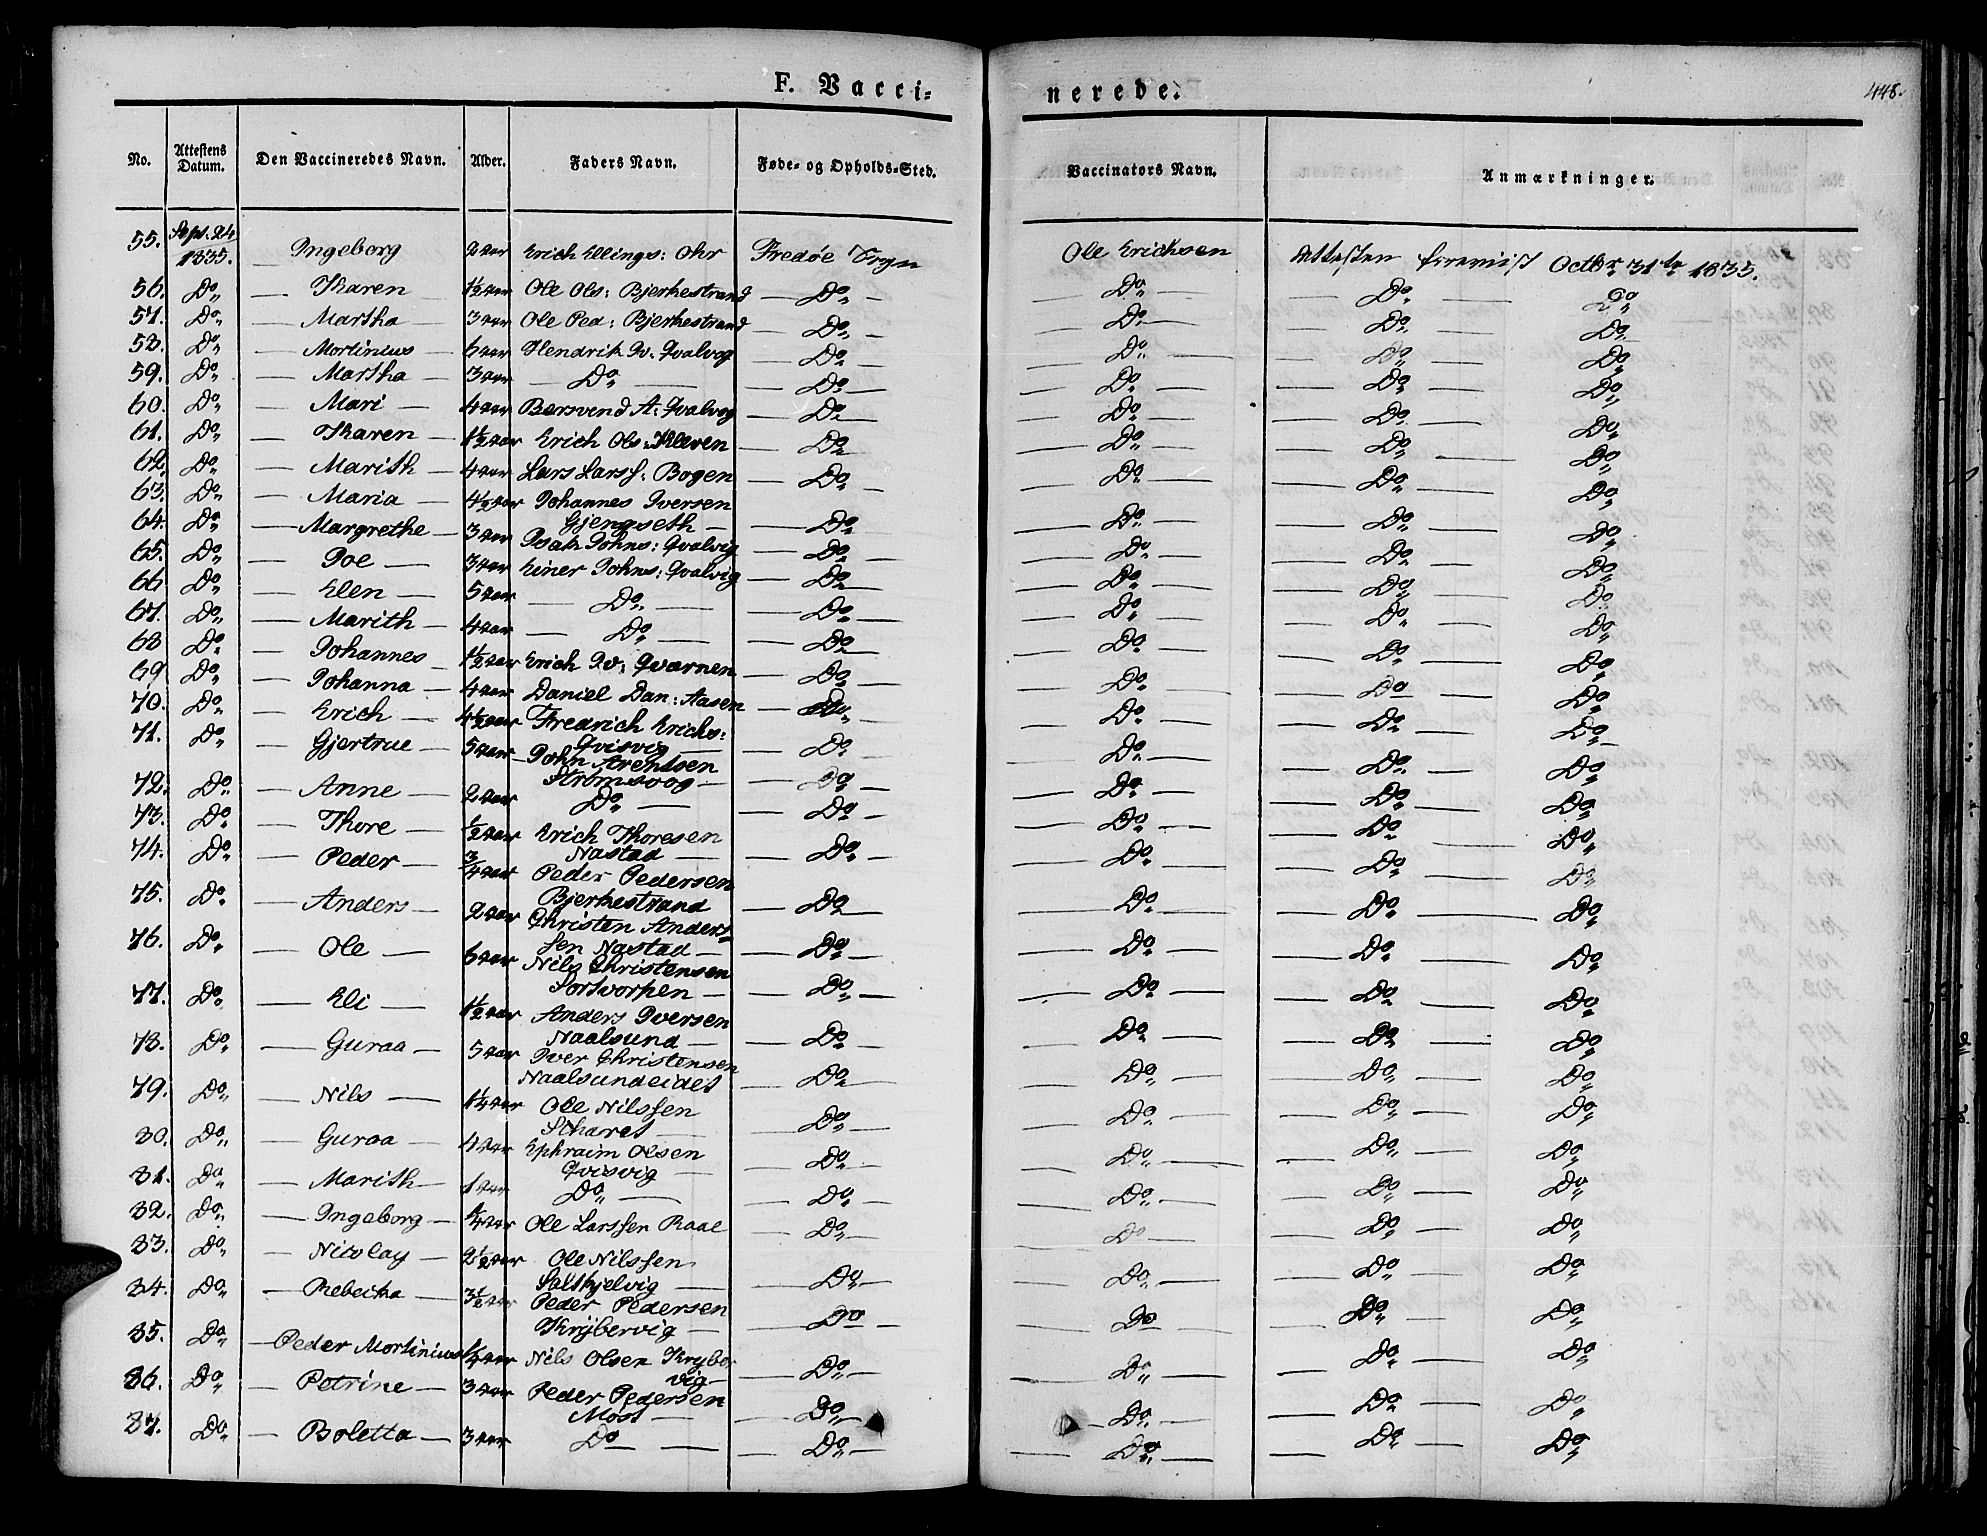 F. Vacci-
nerede.
448.
No. Attestens Datum. Den Vaccineredes Navn. Alder. Faders Navn. Føde- og Opholds-Sted. Vaccinators Navn. Anmærkninger.
55. Sept. 24 1835. Ingeborg 2 aar Erich Ellings: Ohr Fredøe Ole Erichsen Attesten foreviist Octbr 31te 1835.
56. Do — Karen 1½ aar Ole Ols: Bjerkestrand — Do — — Do — — Do — Do
57. Do — Martha — 3 aar Ole Ped: Bjerkestrand — Do — — Do — — Do — Do
58. Do — Mortinius — 6 aar Hendrik Iv: Qvalvog — Do — — Do — — Do — Do
59. Do — Martha — 3 aar — Do — — Do — — Do — — Do — Do
60. Do — Mari — 4 aar Barsvend A: Qvalvog — Do — — Do — — Do — Do
61. Do — Karen — 1½ aar Erich Ols: Kleven — Do — — Do — — Do — Do
62. Do — Marith — 4 aar Lars Larss: Bogen — Do — — Do — — Do — Do
63. Do — Maria — 4½ aar Johannes Iversen
Gjengseth — — Do — — Do — — Do — Do
64. Do — Margrethe — 3 aar Isak Johns: Qvalvig — Do — — Do — — Do — Do
65. Do — Joe — 3 aar Einer Johns: Qvalvig — Do — — Do — — Do — Do
66 Do — Elen — 5 aar — Do — — Do — — Do — — Do — Do
67. Do — Marith — 4 aar — Do — — Do — — Do — — Do — Do
68 Do — Johannes — 1½ aar Erich Iv: Qværnen — Do — — Do — — Do — Do
69 Do — Johanna — 4 aar Daniel Dan: Aasen — Do — — Do — — Do — Do
70. Do — Erich — 4½ aar Fredrich Erichs:
Qvisvig — — Do — — Do — — Do — Do
71. Do — Gjertrue — 5 aar John Arentsen
Strømsvog — — Do — — Do — — Do — Do
72. Do — Anne — 2 aar Do — — Do — — Do — — Do — Do
73. Do — Thore — ½ aar Erich Thoresen
Nastad — — Do — — Do — — Do — Do
74. Do — Peder — ¾ aar Peder Pedersen
Bjerkestrand — Do — — Do — — Do — Do
75. Do — Anders — 2 aar Christen Anders-
sen Nastad — — Do — — Do — — Do — Do
76. Do — Ole — 6 aar Nils Christensen
— Do — — Do — — Do — Do
77. Do — Eli — 1½ aar Anders Iversen
Naalsund — — Do — — Do — — Do — Do
78. Do — Guraa — 5 aar Iver Christensen
Naalsundeidet — Do — — Do — — Do — Do
79. Do — Nils — 1¼ aar Ole Nilssen
Skaret — — Do — — Do — — Do — Do
80. Do — Guraa — 4 aar Ephraim Olsen
Qvisvig — — Do — — Do — — Do — Do
81. Do — Marith — 1 aar Do — — Do — — Do — — Do — Do
82. Do — Ingeborg — ¼ aar Ole Larssen Raae — Do — — Do — — Do — Do
83. Do — Nicolay — 2½ aar Ole Nilssen
Saltkjelvig — — Do — — Do — — Do — Do
84. Do — Rebecka — 3½ aar Peder Pedersen
Krybervig — — Do — — Do — — Do — Do
85. Do — Peder Mortinius ¼ aar Nils Olsen Kryber
vig — — Do — — Do — — Do — Do
86. Do — Petrine — 3 aar Peder Pedersen
Most — — Do — — Do — — Do — Do
87. Do — Boletta — 3 aar Do — — Do — — Do — — Do — Do